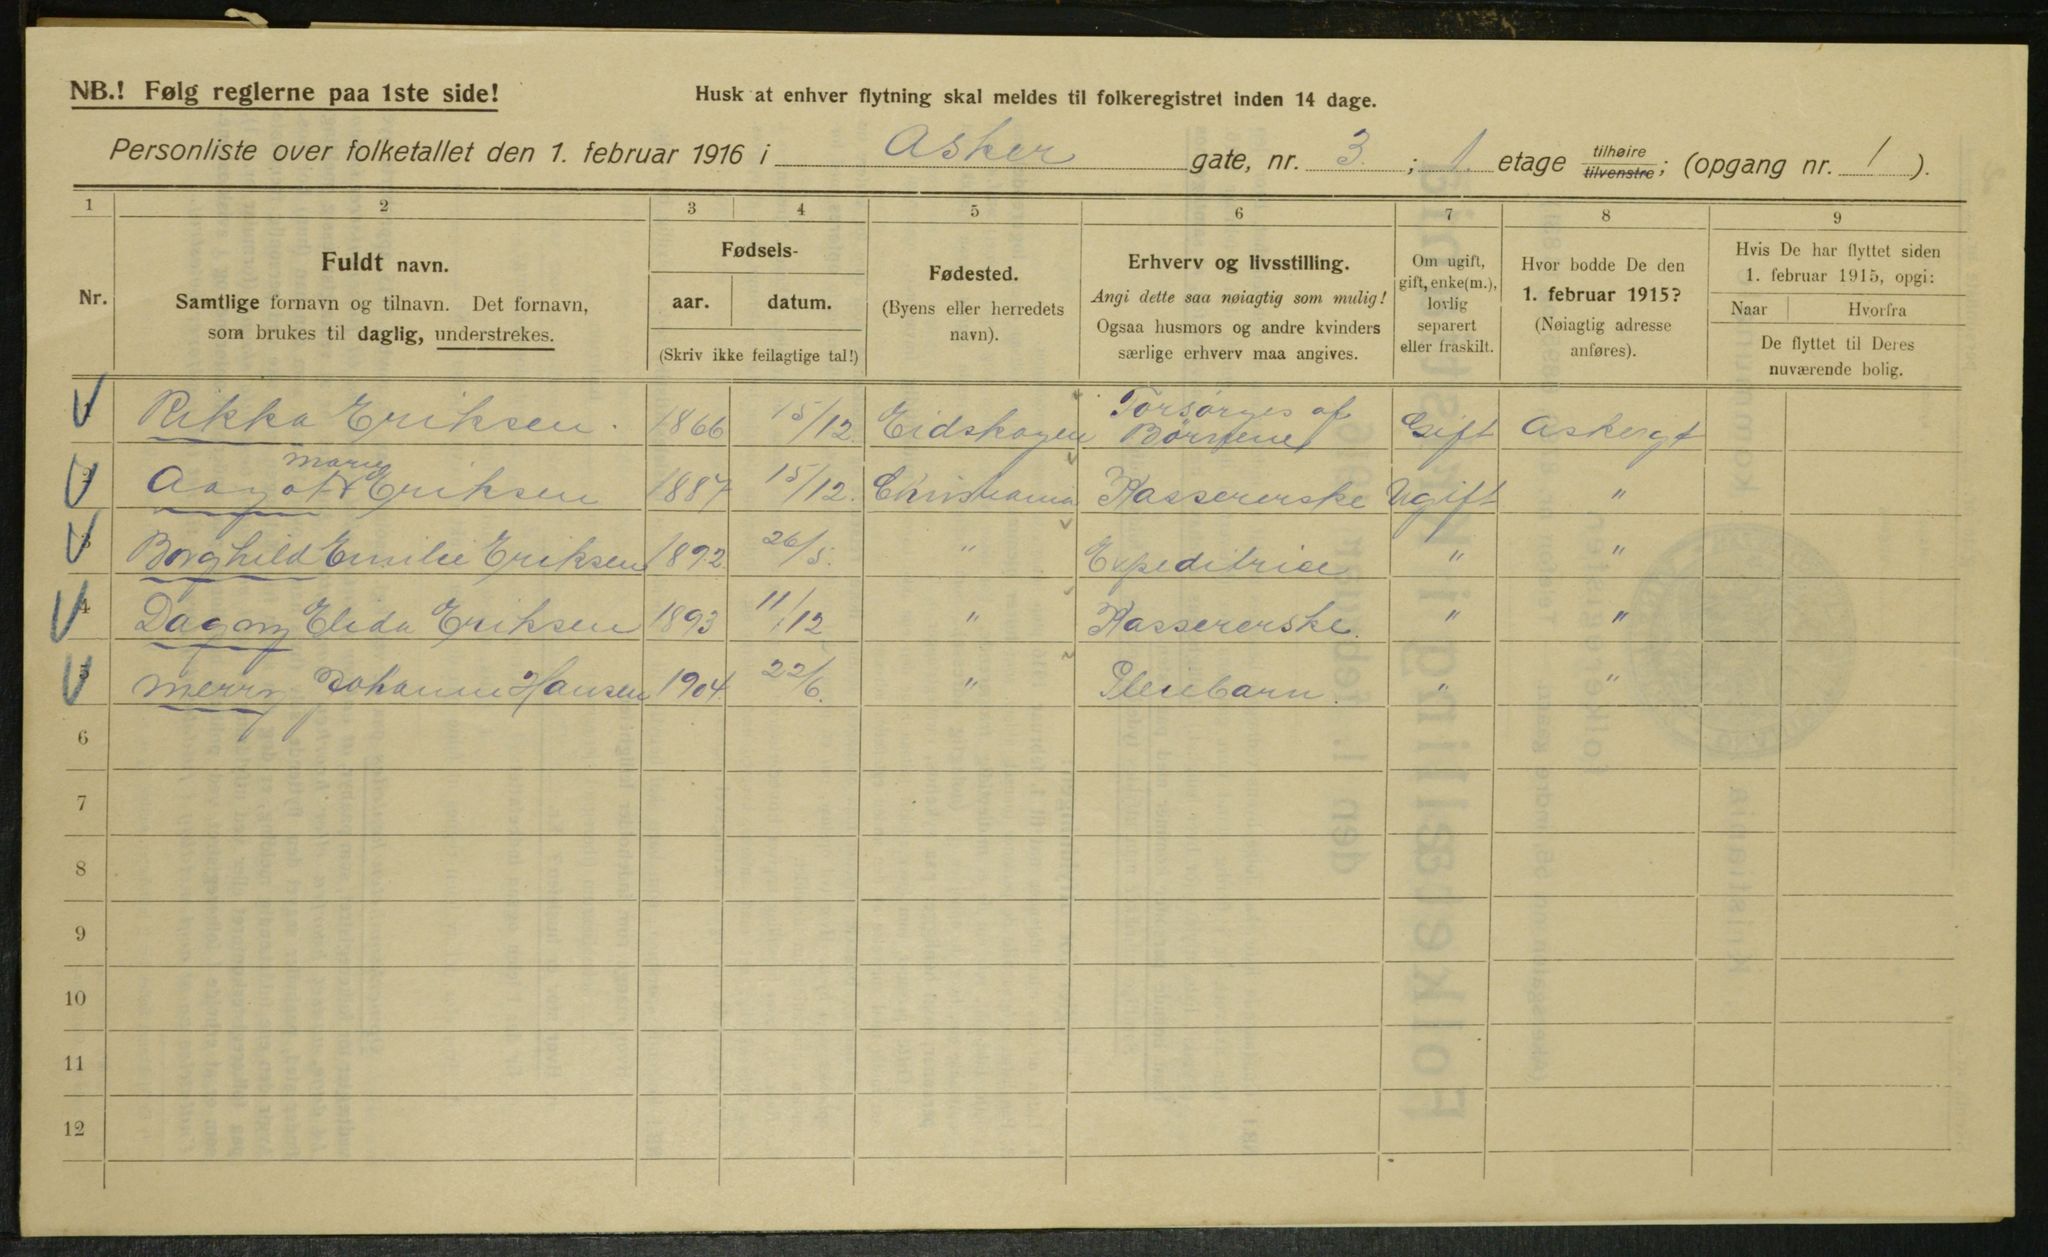 NB.! Følg reglerne paa 1ste side!
Husk at enhver flytning skal meldes til folkeregistret inden 14 dage.
Personliste over folketallet den 1. februar 1916 i Asker gate, nr. 3. ; 1. etage tilhøire tilvenstre; (opgang nr. 1 ).
1 2 3 4 5 6 7 8 9
Nr.
Fuldt navn.
Samtlige fornavn og tilnavn. Det fornavn,
som brukes til daglig, understrekes.
Fødsels-
aar. datum.
(Skriv ikke feilagtige tal!)
Fødested.
(Byens eller herredets
navn).
Erhverv og livsstilling.
Angi dette saa nøiagtig som mulig!
Ogsaa husmors og andre kvinders
særlige erhverv maa angives.
Om ugift,
gift, enke(m.),
lovlig
separert
eller fraskilt.
Hvor bodde De den
1. februar 1915?
(Nøiagtig adresse
anføres).
Hvis De har flyttet siden
1. februar 1915, opgi:
Naar Hvorfra
De flyttet til Deres
nuværende bolig.
1 Rikka Eriksen. 1866 15/12. Eidskogen Forsørges af Børnene Gift Askergt
2 Aagot Marie Eriksen 1887 15/12. Christiania Kassererske Ugift "
3 Borghild Emilie Eriksen 1892 26/5. " Expeditrice " "
4 Dagny Elida Eriksen 1893 11/12 " Kassererske. " "
5 Merry Johanne Hansen 1904 22/6. " Pleiebarn. " "
6
7
8
9
10
11
12